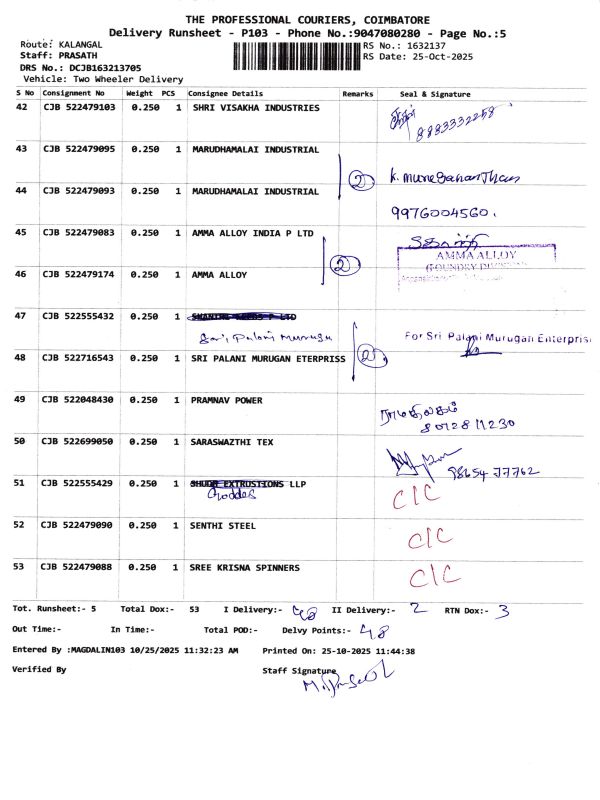 THE PROFESSIONAL COURIERS, COIMBATORE
Delivery Runsheet - P103 - Phone No.:9047080280 - Page No.:5
Route: KALANGAL
RS No.: 1632137
Staff: PRASATH
RS Date: 25-Oct-2025
DRS No.: DCJB163213705
Vehicle: Two Wheeler Delivery
S No Consignment No Weight PCS Consignee Details Remarks Seal & Signature
42 CJB 522479103 0.250 1 SHRI VISAKHA INDUSTRIES
8883332258
43 CJB 522479095 0.250 1 MARUDHAMALAI INDUSTRIAL
2 K. Munegananthan
44 CJB 522479093 0.250 1 MARUDHAMALAI INDUSTRIAL
9976004560.
45 CJB 522479083 0.250 1 AMMA ALLOY INDIA P LTD
2 AMMA ALLOY
46 CJB 522479174 0.250 1 AMMA ALLOY
47 CJB 522555432 0.250 1 P LTD
Sri, Palani Murugu For Sri Palani Murugan Enterpris
2
48 CJB 522716543 0.250 1 SRI PALANI MURUGAN ETERPRISS
49 CJB 522048430 0.250 1 PRAMNAV POWER
8012811230
50 CJB 522699050 0.250 1 SARASWAZTHI TEX
98654 77762
51 CJB 522555429 0.250 1 EXTRUSTIONS LLP
C/C
52 CJB 522479090 0.250 1 SENTHI STEEL
C/C
53 CJB 522479088 0.250 1 SREE KRISNA SPINNERS
C/C
Tot. Runsheet:- 5 Total Dox:- 53 I Delivery:- 48 II Delivery:- 2 RTN Dox:- 3
Out Time:- In Time:- Total POD:- Delvy Points:- 48
Entered By :MAGDALIN103 10/25/2025 11:32:23 AM Printed On: 25-10-2025 11:44:38
Verified By Staff Signature